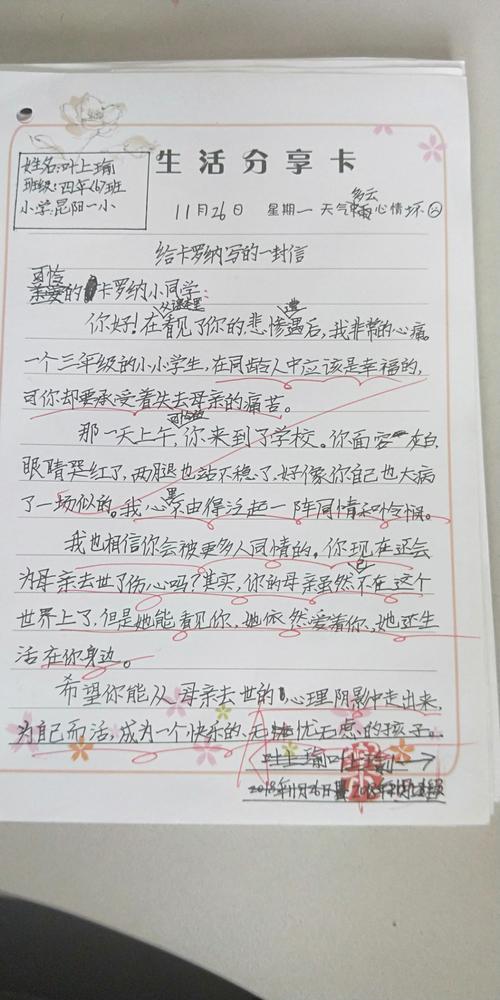 生活分享卡
姓名:叶上瑜
班级:四年(6)班
小学:昆阳一小
11月26日 星期一 天气多云 心情坏
给卡罗纳写的一封信
可怜的卡罗纳小同学:
你好!在看见了你的悲惨遭遇后,我非常的心痛。
一个三年级的小小学生,在同龄人中应该是幸福的,
可你却要承受着失去母亲的痛苦。
那一天上午,你来到了学校。你面容灰白,
眼睛哭红了,两腿也站不稳了,好像你自己也大病
了一场似的。我心里不由得泛起一阵同情和怜悯。
我也相信你会被更多人同情的。你现在还会
为母亲去世了伤心吗?其实,你的母亲虽然不在这个
世界上了,但是她能看见你,她依然爱着你,她还生
活在你身边。
希望你能从母亲去世的心理阴影中走出来,
为自己而活,成为一个快乐的、无忧无虑的孩子。
叶上瑜
2018年11月26日